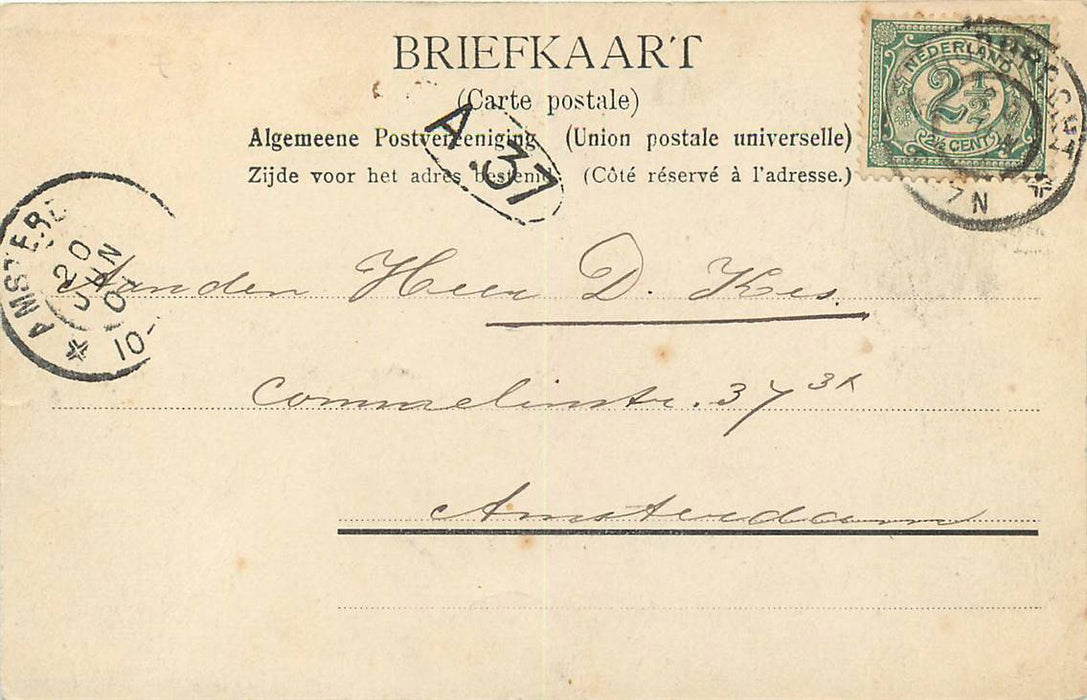 BRIEFKAART
(Carte postale)
Algemeene Postvereeniging (Union postale universelle)
Zijde voor het adres bestemd. (Côté réservé à l'adresse.)
NEDERLAND
2½
2½ CENT
7 N
A.37
AMSTERD
20
JUN
10-
Aan den Heer D. Kes.
Commelinstr. 37
Amsterdam